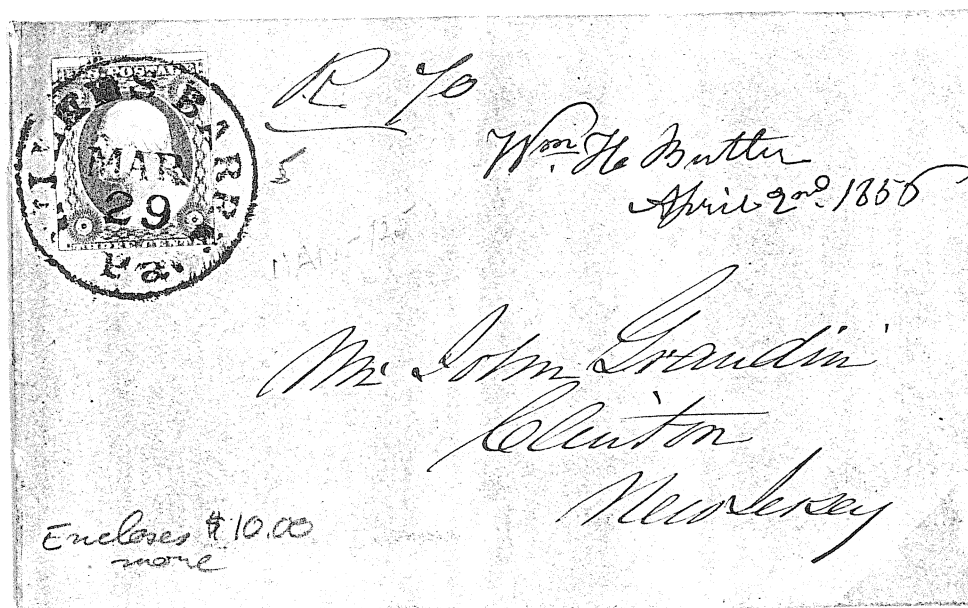 U.S. POSTAGE
WILKESBARRE
MAR
29
Pa.
THREE CENTS
R. To
Wm. H. Butler
April 2nd. 1856
Mr. John Grandin
Clinton
New Jersey
Encloses $10.00
more